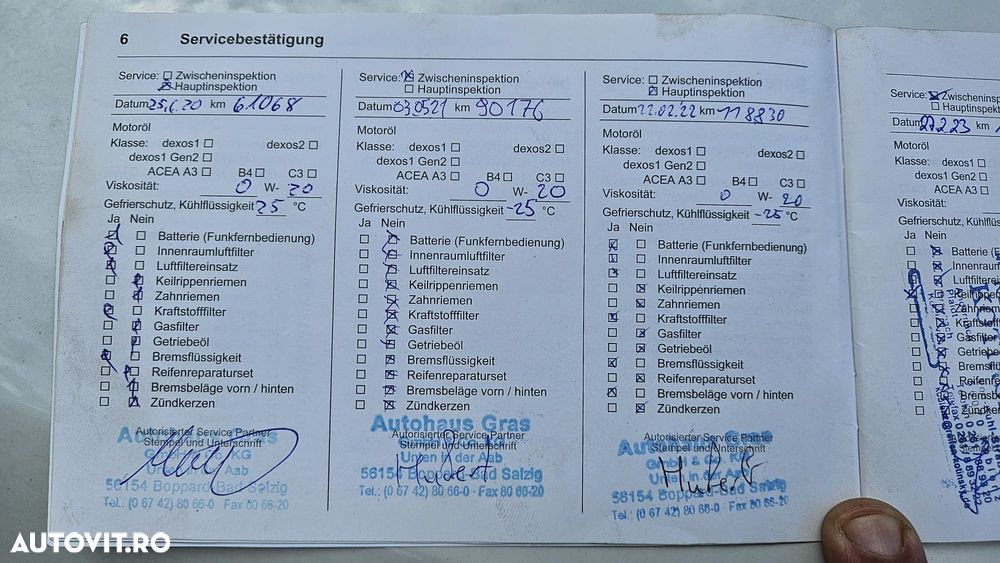 6 Servicebestätigung
Service: Zwischeninspektion
Hauptinspektion
Datum 25.6.20 km 61068
Motoröl
Klasse: dexos1 dexos2
dexos1 Gen2
ACEA A3 B4 C3
Viskosität: 0 W- 20
Gefrierschutz, Kühlflüssigkeit 25 °C
Ja Nein
Batterie (Funkfernbedienung)
Innenraumluftfilter
Luftfiltereinsatz
Keilrippenriemen
Zahnriemen
Kraftstofffilter
Gasfilter
Getriebeöl
Bremsflüssigkeit
Reifenreparaturset
Bremsbeläge vorn / hinten
Zündkerzen
Autorisierter Service Partner
Stempel und Unterschrift
56154 Boppard-Bad Salzig
Tel.: (0 67 42) 80 66-0 · Fax 80 66-20
Service: Zwischeninspektion
Hauptinspektion
Datum 03.05.21 km 90176
Motoröl
Klasse: dexos1 dexos2
dexos1 Gen2
ACEA A3 B4 C3
Viskosität: 0 W- 20
Gefrierschutz, Kühlflüssigkeit -25 °C
Ja Nein
Batterie (Funkfernbedienung)
Innenraumluftfilter
Luftfiltereinsatz
Keilrippenriemen
Zahnriemen
Kraftstofffilter
Gasfilter
Getriebeöl
Bremsflüssigkeit
Reifenreparaturset
Bremsbeläge vorn / hinten
Zündkerzen
Autohaus Gras
Autorisierter Service Partner
Stempel und Unterschrift
Unten in der Aab
Hubert
56154 Boppard-Bad Salzig
Tel.: (0 67 42) 80 66-0 · Fax 80 66-20
Service: Zwischeninspektion
Hauptinspektion
Datum 22.02.22 km 118830
Motoröl
Klasse: dexos1 dexos2
dexos1 Gen2
ACEA A3 B4 C3
Viskosität: 0 W- 20
Gefrierschutz, Kühlflüssigkeit -25 °C
Ja Nein
Batterie (Funkfernbedienung)
Innenraumluftfilter
Luftfiltereinsatz
Keilrippenriemen
Zahnriemen
Kraftstofffilter
Gasfilter
Getriebeöl
Bremsflüssigkeit
Reifenreparaturset
Bremsbeläge vorn / hinten
Zündkerzen
Autorisierter Service Partner
Stempel und Unterschrift
GmbH & Co. KG
Unten in der Aab
Hubert
56154 Boppard-Bad Salzig
Tel.: (0 67 42) 80 66-0 · Fax 80 66-20
Service: Zwischeninspe
Hauptinspekt
Datum 27.2.23 km
Motoröl
Klasse: dexos1
dexos1 Gen2
ACEA A3
Viskosität:
Gefrierschutz, Kühlflüssig
Ja Nein
Batterie (F
Innenraum
Luftfilterei
Keilrippen
Zahnriem
Kraftstoff
Gasfilter
Getriebe
Bremsflü
Reifenre
Bremsb
Zündke
AUTOVIT.RO